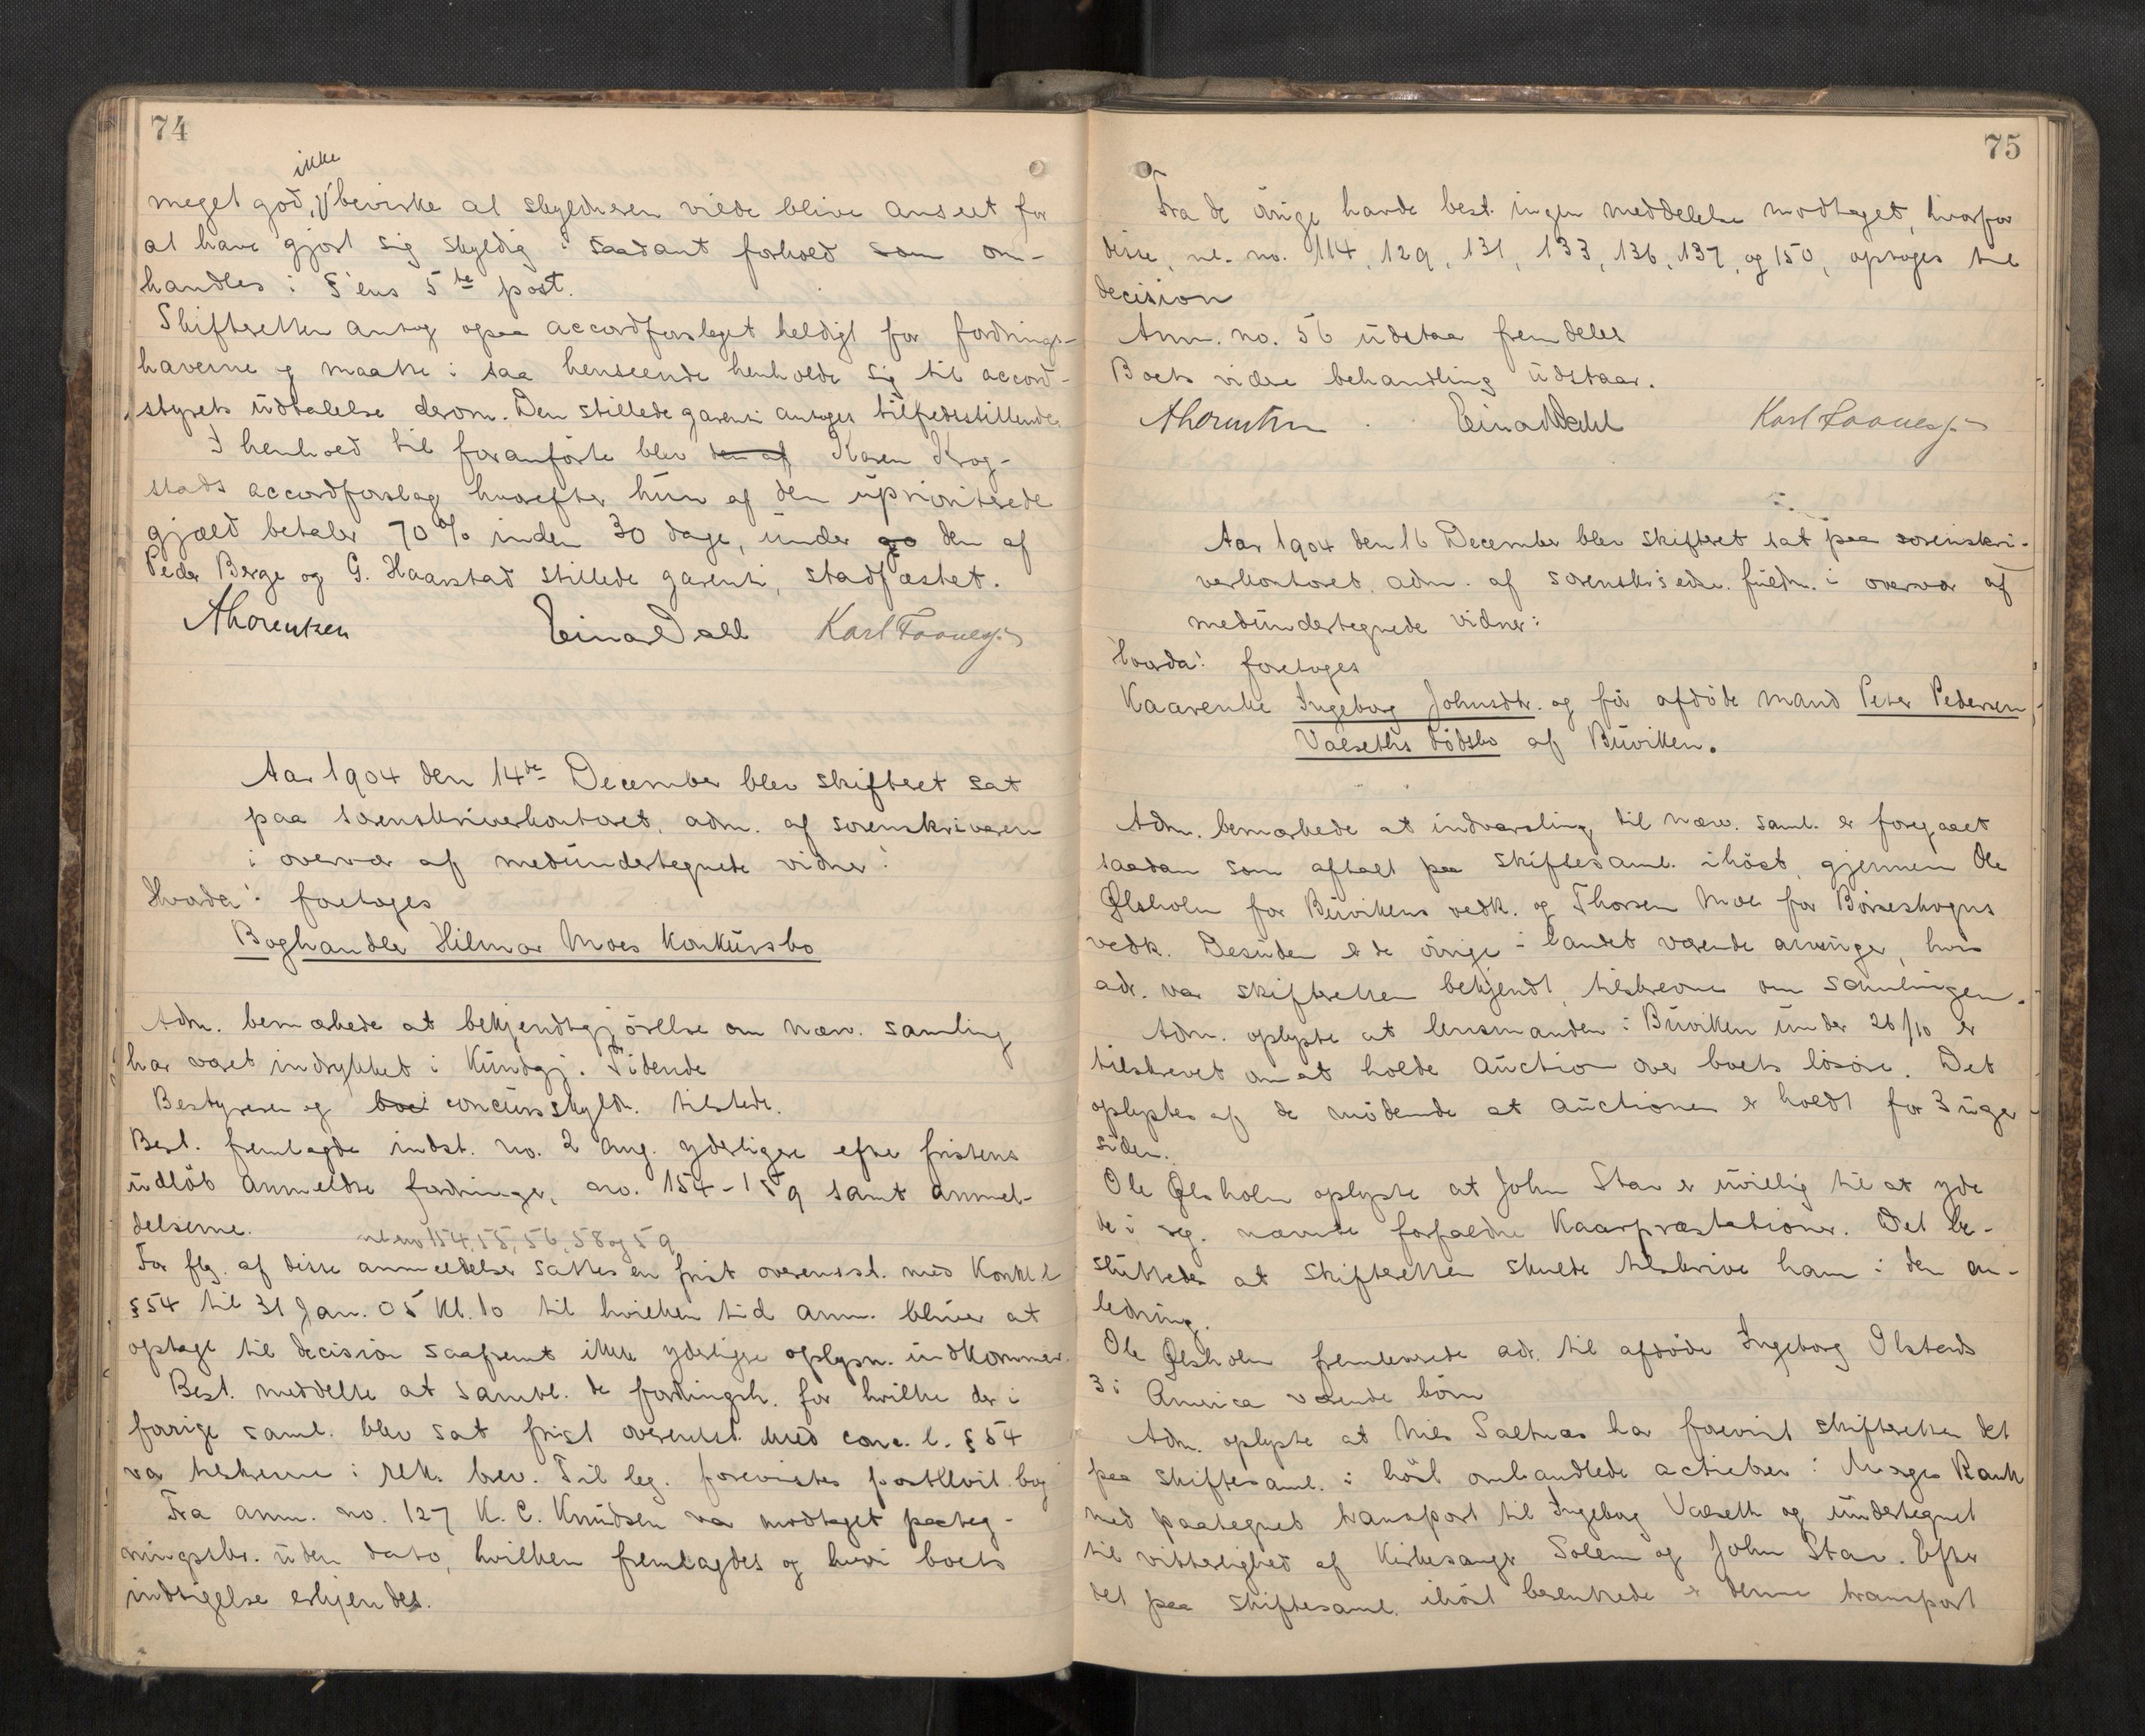 74
ikke
meget god, bevirke at skyldneren vilde blive anseet for
at have gjort sig skyldig i saadant forhold som om-
handles i §'ens 5te post.
Skifteretten antog ogsaa accordforslaget heldigt for fordrings-
haverne og maatte i saa henseende henholde sig til accord-
styrets udtalelse derom. Den stillede garanti antoges tilfredsstillende
I henhold til foranførte blev den af Karen Krog-
stads accordforslag hvorefter hun af den uprioriterede
gjæld betaler 70% inden 30 dage, under go den af
Peder Berge og G. Haarstad stillede garanti, stadfæstet.
AThorentzen Einar Dahl Karl Foones
Aar 1904 den 14de December blev skifteret sat
paa sorenskriverkontoret, adm. af sorenskriveren
i overvær af medundertegnede vidner:
Hvorda: foretoges
Boghandler Hilmar Moes Konkursbo
Adm. bemærkede at bekjendtgjørelse om nærv. samling
har været indrykket i Kundgj. Tidende
Bestyreren og boei concursskyldn. tilstede.
Best. fremlagde indst. no. 2 ang. yderligere efter fristens
udløb anmeldte fordringer, no. 154-159 samt anmel-
delserne.
nl. no 154, 55, 56, 58 og 59
For flg. af disse anmeldelser sattes en frist overensst. med Konk l
§ 54 til 31 Jan. 05 kl. 10 til hvilken tid anm. bliver at
optage til decision saafremt ikke yderligere oplysn. indkommer.
Best. meddelte at samtl. de fordringsh. for hvilke der i
forrige saml. blev sat frist overensst. med conc. l. § 54
var tilskrevne i rek. brev. Til leg. forevistes postkvit.bog
Fra anm. no. 127 K. C. Knudsen var modtaget paateg-
ningsbr. uden dato, hvilken fremlagdes og hvori boets
indsigelse erkjendes.
75
Fra de øvrige havde best. ingen meddelelse modtaget, hvorfor
disse, nl. no. 114, 129, 131, 133, 136, 137, og 150, optoges til
decision
Anm. no. 56 udstaa fremdeles
Boets videre behandling udstaar.
AThorentzen Einar Dahl Karl Foones
Aar 1904 den 16 December blev skifteret sat paa sorenskri-
verkontoret, adm. af sorenskr's edsv. fuldm. i overvær af
medundertegnede vidner:
Hvorda: foretoges
Kaarenke Ingeborg Johnsdtr. og før afdøde mand Peter Pedersen
Valseths dødsbo af Buviken.
Adm. bemærkede at indvarsling til nærv. saml. er foregaaet
saadan som aftalt paa skiftesaml. ihøst, gjennem Ole
Ølsholm for Buvikens vedk. og Thorsen Moe for Børseskogns
vedk. Desuden er de øvrige i landet værende arvinger, hvis
adr. var skifteretten bekjendt, tilskrevne om samlingen.
Adm. oplyste at lensmanden i Buviken under 26/10 er
tilskrevet om at holde auction over boets løsøre. Det
oplystes af de mødende at auctionen er holdt for 3 uger
siden.
Ole Ølsholm oplyste at John Stav er uvillig til at yde
de i reg. nævnte forfaldne Kaarpræstationer. Det be-
sluttedes at skifteretten skulde tilskrive ham i den an-
ledning.
Ole Ølsholm fremleverede adr. til afdøde Ingeborg Olstads
3 i America værende børn
Adm. oplyste at Nils Saltnæs har forevist skifteretten det
paa skiftesaml. i høst omhandlede actiebrev i Norges Bank
med paategnet transport til Ingeborg Valseth og undertegnet
til vitterlighed af Kirkesanger Solem og John Stav. Efter
det paa skiftesaml. ihøst besluttede er denne transport